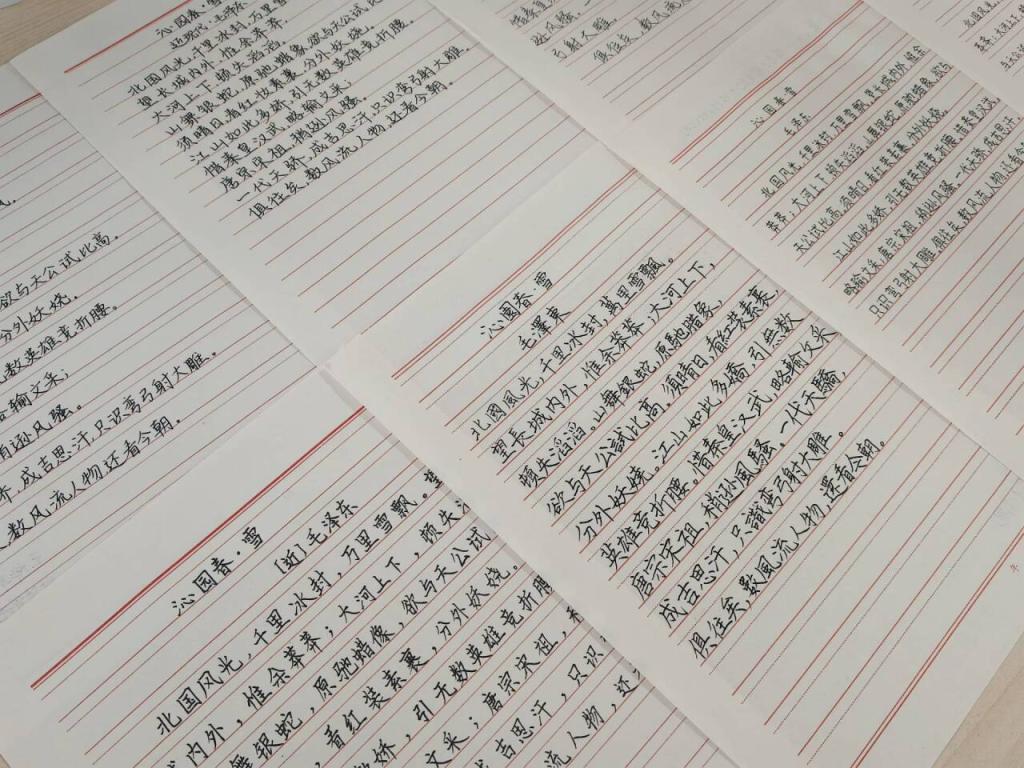 沁园春·雪
近现代·毛泽东
北国风光,千里冰封,万里雪
望长城内外,惟余莽莽
大河上下,顿失滔滔
山舞银蛇,原驰蜡象,欲与天公试比
须晴日看红妆素裹,分外妖娆.
江山如此多娇,引无数英雄竞折腰.
惜秦皇汉武,略输文采
唐宗宋祖,稍逊风骚
一代天骄,成吉思汗,只识弯弓射大雕
俱往矣,数风流人物,还看今朝.
欲与天公试比高.
分外妖娆.
数英雄竞折腰.
输文采;
稍逊风骚。
成吉思汗,只识弯弓射大雕.
数风流人物还看今朝.
沁園春 雪
毛澤東
北國風光,千里冰封,萬里雪飄。
望長城内外,惟余莽莽,大河上下,
頓失滔滔。山舞銀蛇,原馳蜡象,
欲与天公試比高。須晴日,看紅裝素裹,
分外妖娆。江山如此多嬌,引無数
英雄竞折腰。惜秦皇汉武,略輸文采
唐宗宋祖,稍遜風騷。一代天驕,
成吉思汗,只識彎弓射大雕。
俱往矣,数風流人物,還看今朝。
沁园春·雪
[近]毛泽东
北国风光,千里冰封,万里雪飘。望
内外,惟余莽莽;大河上下,顿失滔
舞银蛇,原驰蜡像,欲与天公试
看红装素裹,分外妖娆。
娇,引无数英雄竞折腰
文采;唐宗宋祖,稍
成吉思汗,只识
流人物,还
沁园春雪
毛泽东
北国风光,千里冰封,万里雪飘,望长城内外,惟余
莽莽,大河上下,顿失滔滔,山舞银蛇,原驰蜡象,欲与
天公试比高,须晴日,看红装素裹,分外妖娆.
江山如此多娇,引无数英雄竞折腰,惜秦皇汉武,
略输文采,唐宗宋祖,稍逊风骚,一代天骄,成吉思汗
只识弯弓射大雕,俱往矣,数风流人物,还看
逊风骚,一代
弓射大雕
俱往矣,数风流